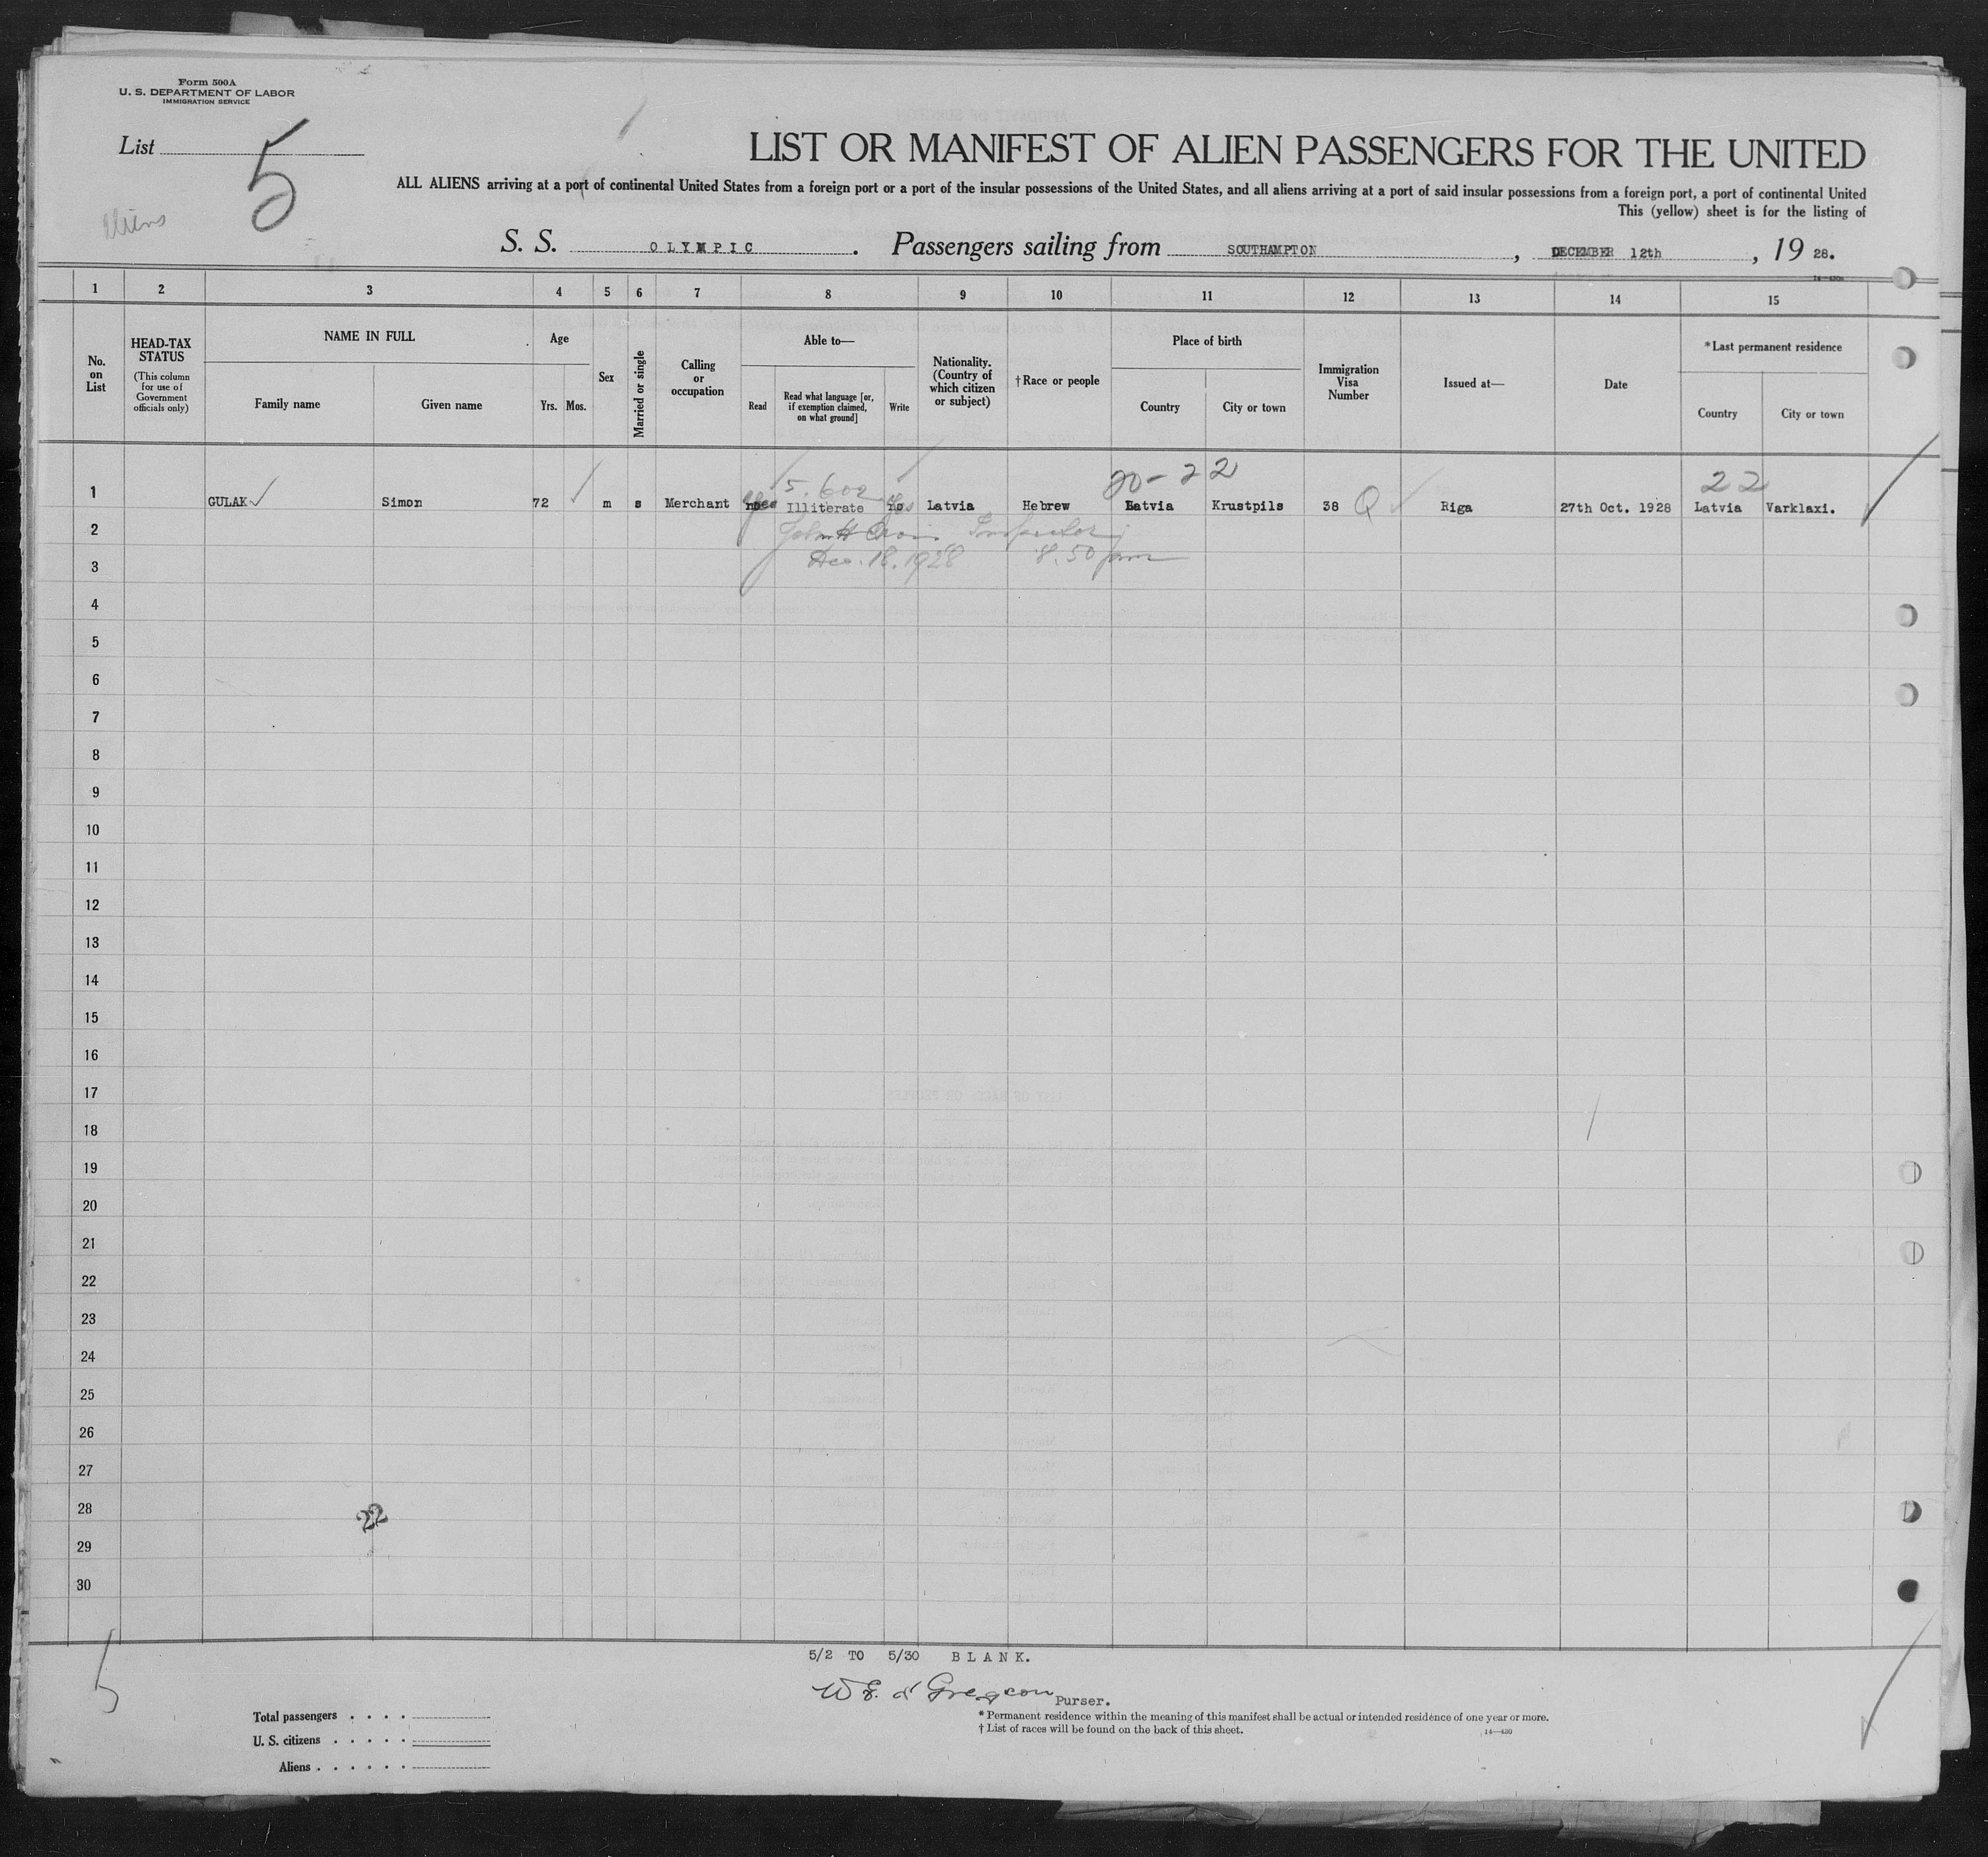 Form 500A
U. S. DEPARTMENT OF LABOR
IMMIGRATION SERVICE
List 5
Aliens
LIST OR MANIFEST OF ALIEN PASSENGERS FOR THE UNITED
ALL ALIENS arriving at a port of continental United States from a foreign port or a port of the insular possessions of the United States, and all aliens arriving at a port of said insular possessions from a foreign port, a port of continental United
This (yellow) sheet is for the listing of
S. S. OLYMPIC. Passengers sailing from SOUTHAMPTON, DECEMBER 12th, 19 28.
14—430
1 2 3 4 5 6 7 8 9 10 11 12 13 14 15
No. on List
HEAD-TAX STATUS
(This column for use of Government officials only)
NAME IN FULL
Family name Given name
Age
Yrs. Mos.
Sex
Married or single
Calling or occupation
Able to—
Read
Read what language [or, if exemption claimed, on what ground]
Write
Nationality. (Country of which citizen or subject)
†Race or people
Place of birth
Country City or town
Immigration Visa Number
Issued at—
Date
*Last permanent residence
Country City or town
5.602 20-22 22
1 GULAK Simon 72 m s Merchant yes Illiterate no yes Latvia Hebrew Latvia Krustpils 38 Q Riga 27th Oct. 1928 Latvia Varklaxi.
2 John H Inspector
3 Dec. 18. 1928 8.50 pm
4
5
6
7
8
9
10
11
12
13
14
15
16
17
18
19
20
21
22
23
24
25
26
27
28
22
29
30
5
5/2 TO 5/30 BLANK.
Purser.
Total passengers . . . .
U. S. citizens . . . . .
Aliens . . . . . .
* Permanent residence within the meaning of this manifest shall be actual or intended residence of one year or more.
† List of races will be found on the back of this sheet.
14—430